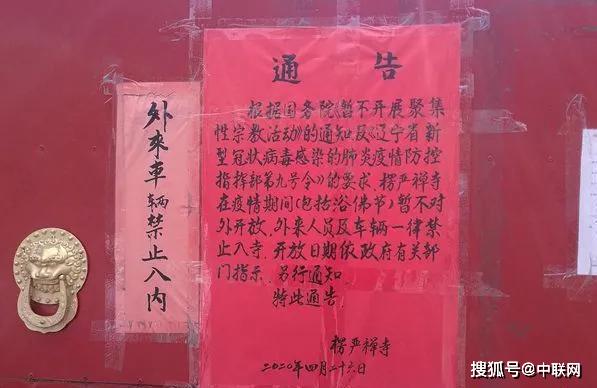 外來車辆禁止入内
通告
根据国务院《暂不开展聚集
性宗教活动》的通知及《辽宁省新
型冠状病毒感染的肺炎疫情防控
指挥部第九号令》的要求，楞严禅寺
在疫情期间(包括浴佛节)暂不对
外开放，外来人员及车辆一律禁
止入寺，开放日期依政府有关部
门指示，另行通知。
特此通告。
楞严禅寺
二〇二〇年四月二十六日
搜狐号@中联网